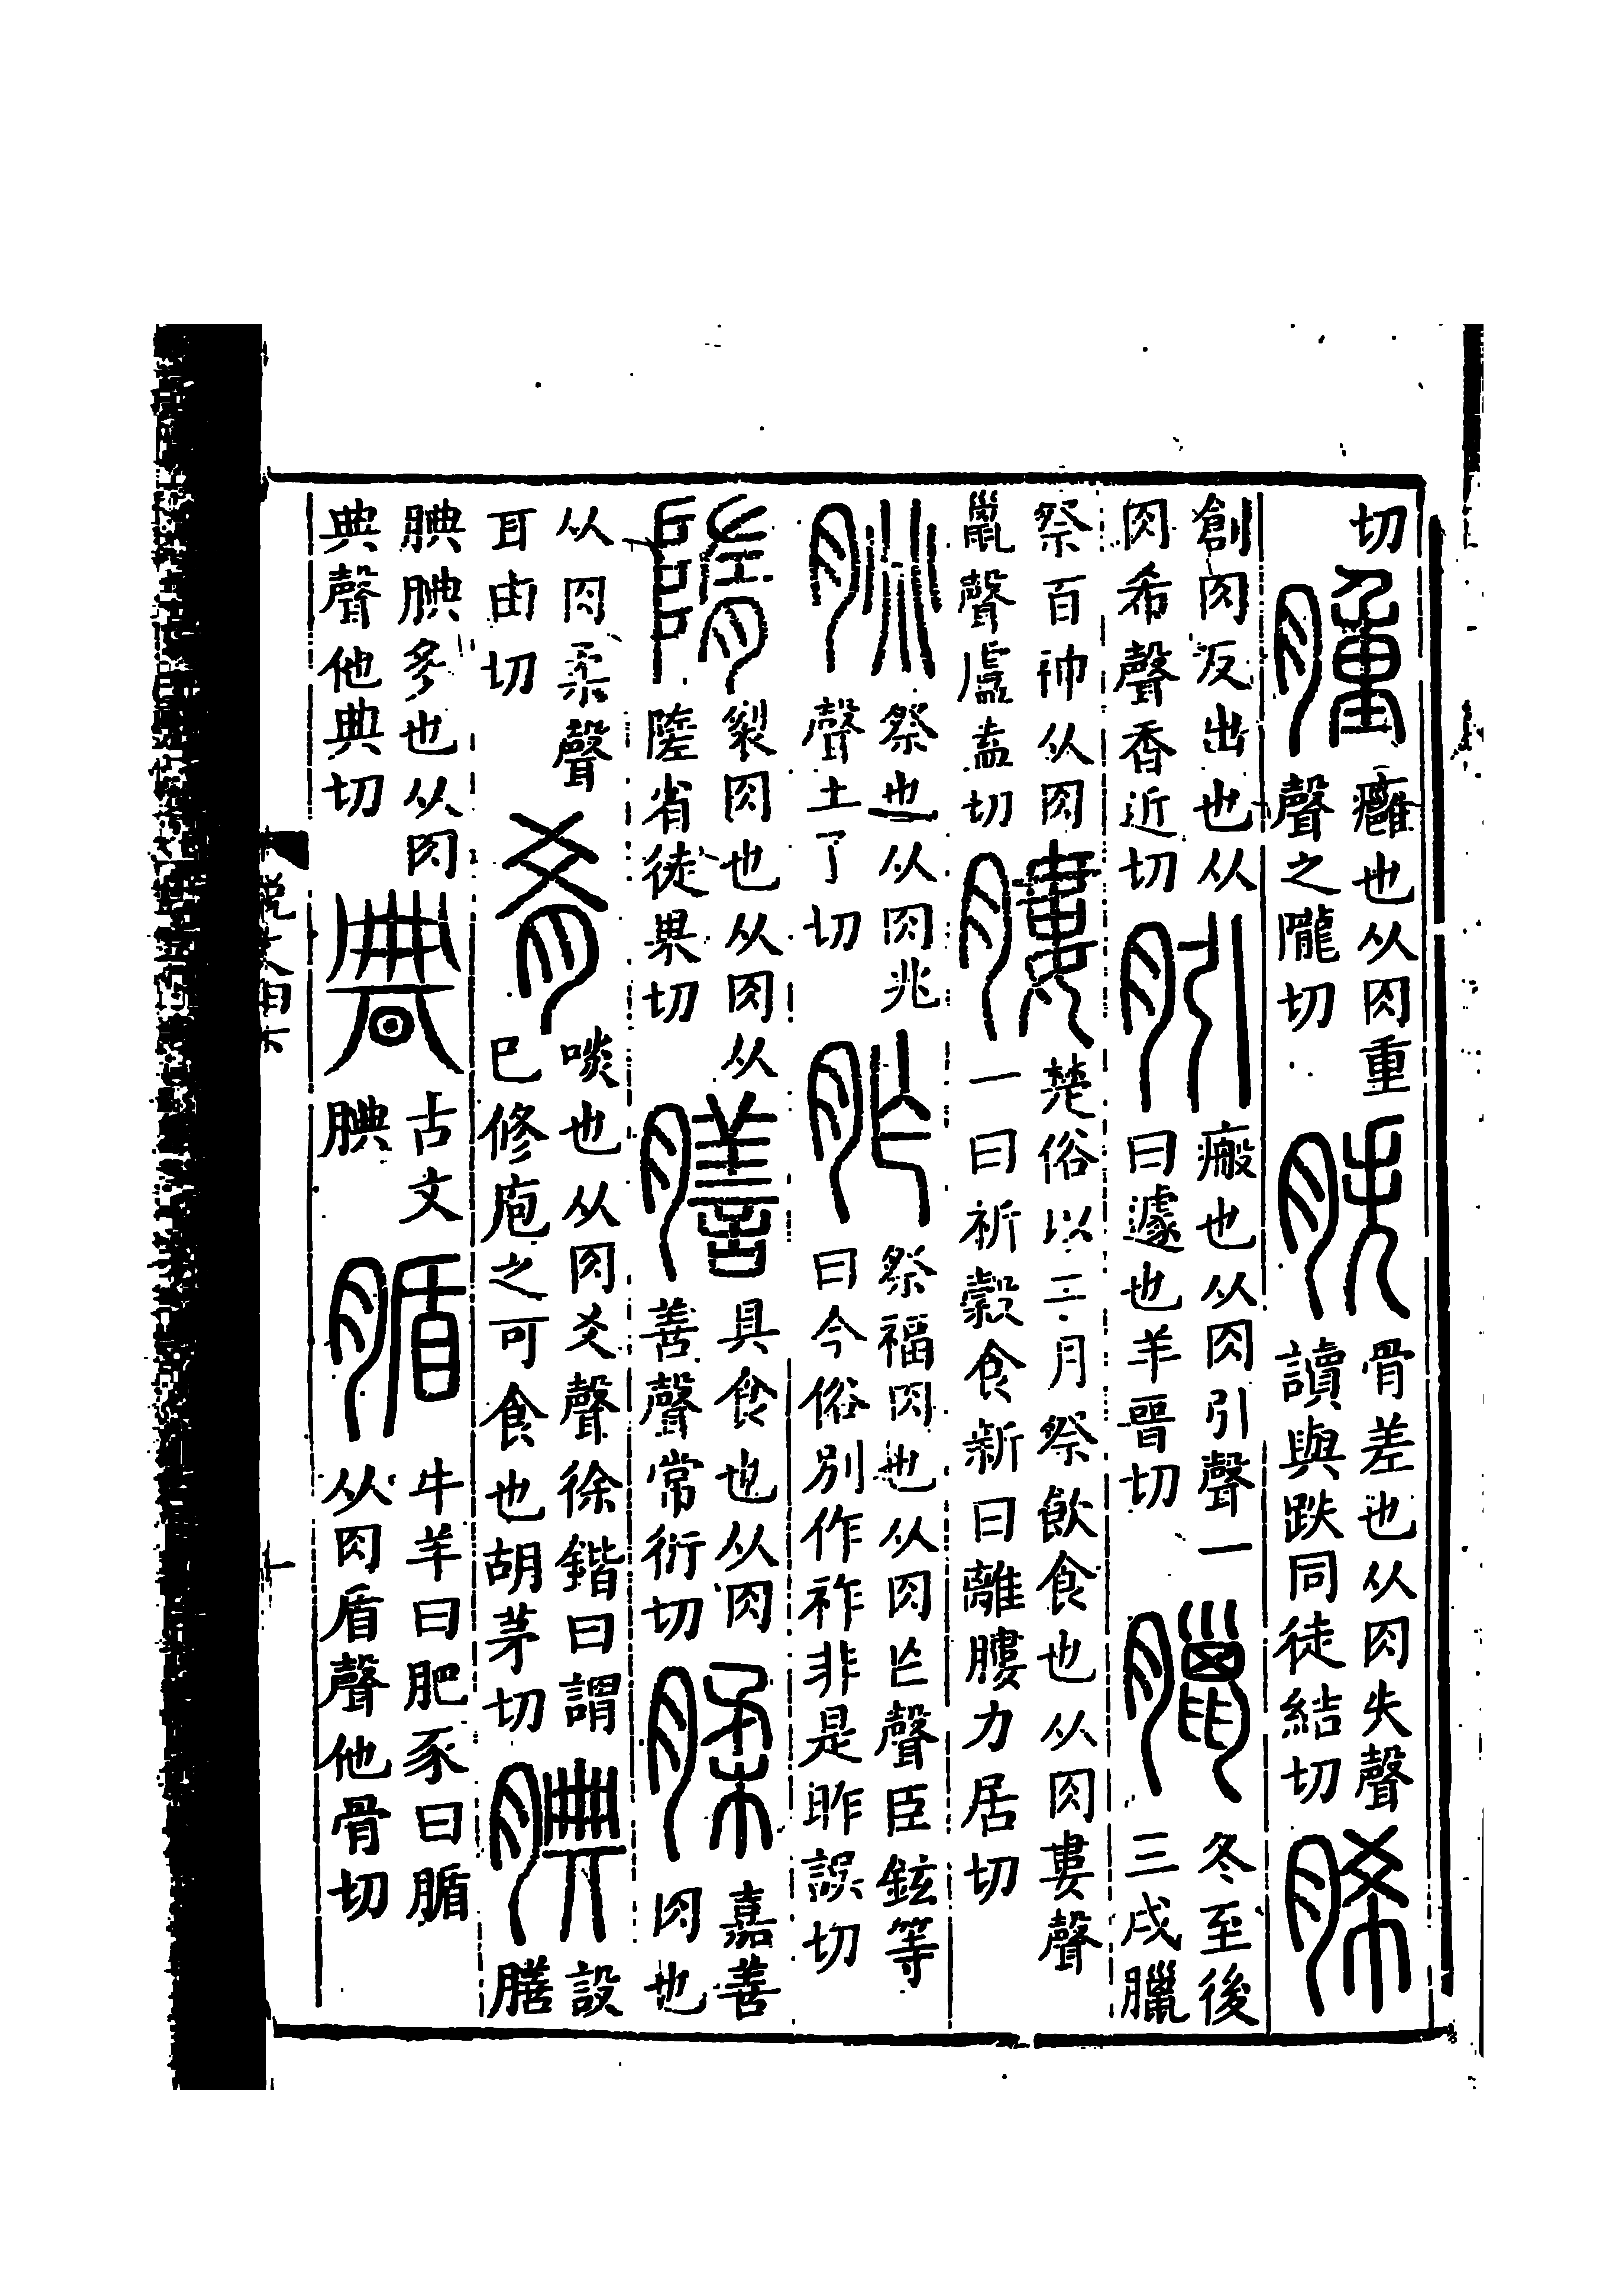 切
腫
癰也从肉重
聲之隴切
胅
骨差也从肉失聲
讀與跌同徒結切
脪
創肉反出也从
肉希聲香近切
䏖
瘢也从肉引聲一
曰遽也羊晉切
臘
冬至後
三戌臘
祭百神从肉
巤聲盧盍切
膢
楚俗以二月祭飲食也从肉婁聲
一曰祈穀食新曰離膢力居切
朓
祭也从肉兆
聲土了切
胙
祭福肉也从肉乍聲臣鉉等
曰今俗別作祚非是昨誤切
隋
裂肉也从肉从
隓省徒果切
膳
具食也从肉
善聲常衍切
腬
嘉善
肉也
从肉柔聲
耳由切
肴
啖也从肉爻聲徐鍇曰謂
已修庖之可食也胡茅切
腆
設
膳
腆腆多也从肉
典聲他典切
古文
腆
腯
牛羊曰肥豕曰腯
从肉盾聲他骨切